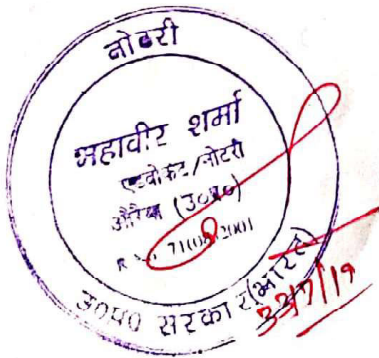 नोटरी
महावीर शर्मा
एडवोकेट/नोटरी
औरैया (उ०प्र०)
71(08)2001
उ०प्र० सरकार (भारत)